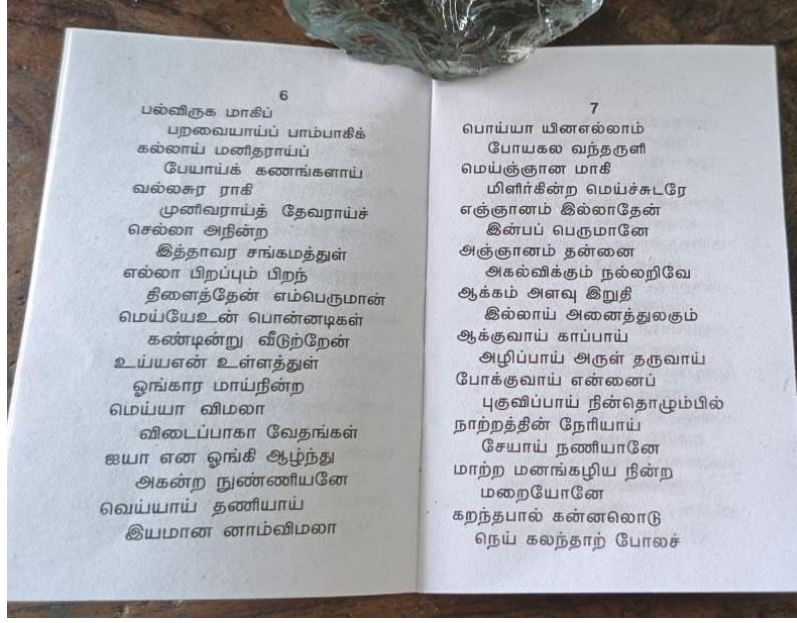 6
பல்விருக மாகிப்
பறவையாய்ப் பாம்பாகிக்
கல்லாய் மனிதராய்ப்
பேயாய்க் கணங்களாய்
வல்லசுர ராகி
முனிவராய்த் தேவராய்ச்
செல்லா அநின்ற
இத்தாவர சங்கமத்துள்
எல்லா பிறப்பும் பிறந்
திளைத்தேன் எம்பெருமான்
மெய்யேஉன் பொன்னடிகள்
கண்டின்று வீடுற்றேன்
உய்யஎன் உள்ளத்துள்
ஓங்கார மாய்நின்ற
மெய்யா விமலா
விடைப்பாகா வேதங்கள்
ஐயா என ஓங்கி ஆழ்ந்து
அகன்ற நுண்ணியனே
வெய்யாய் தணியாய்
இயமான னாம்விமலா
7
பொய்யா யினஎல்லாம்
போயகல வந்தருளி
மெய்ஞ்ஞான மாகி
மிளிர்கின்ற மெய்ச்சுடரே
எஞ்ஞானம் இல்லாதேன்
இன்பப் பெருமானே
அஞ்ஞானம் தன்னை
அகல்விக்கும் நல்லறிவே
ஆக்கம் அளவு இறுதி
இல்லாய் அனைத்துலகும்
ஆக்குவாய் காப்பாய்
அழிப்பாய் அருள் தருவாய்
போக்குவாய் என்னைப்
புகுவிப்பாய் நின்தொழும்பில்
நாற்றத்தின் நேரியாய்
சேயாய் நணியானே
மாற்ற மனங்கழிய நின்ற
மறையோனே
கறந்தபால் கன்னலொடு
நெய் கலந்தாற் போலச்